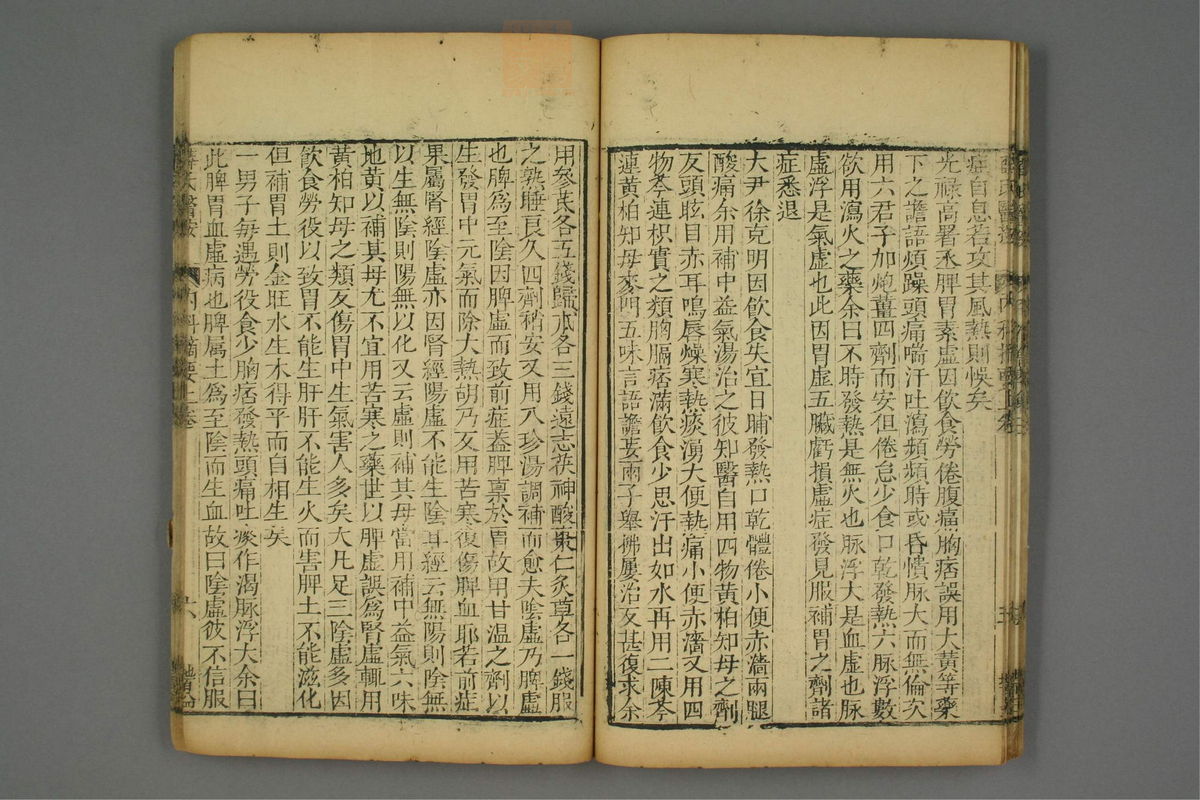 症自息若攻其風熱則悞矣
光祿高署丞脾胃素虛因飲食勞倦腹痛胸痞誤用大黃等藥
下之譫語煩躁頭痛喘汗吐瀉頻頻時或昏憒脉大而無倫次
用六君子加炮薑四劑而安但倦怠少食口乾發熱六脉浮數
欲用瀉火之藥余曰不時發熱是無火也脉浮大是血虛也脉
虛浮是氣虛也此因胃虛五臟虧損虛症發見服補胃之劑諸
症悉退
大尹徐克明因飲食失宜日晡發熱口乾體倦小便赤澁兩腿
酸痛余用補中益氣湯治之彼知醫自用四物黃柏知母之劑
反頭眩目赤耳鳴唇燥寒熱痰湧大便熱痛小便赤澁又用四
物芩連枳實之類胸膈痞滿飲食少思汗出如水再用二陳芩
連黃柏知母麥門五味言語譫妄兩子舉拂屢治反甚復求余
用參芪各五錢歸朮各三錢遠志茯神酸棗仁炙草各一錢服
之熟睡良久四劑稍安又用八珍湯調補而愈夫陰虛乃脾虛
也脾爲至陰因脾虛而致前症葢脾禀於胃故用甘温之劑以
生發胃中元氣而除大熱胡乃又用苦寒復傷脾血耶若前症
果屬腎經陰虛亦因腎經陽虛不能生陰耳經云無陽則陰無
以生無陰則陽無以化又云虛則補其母當用補中益氣六味
地黃以補其母尤不宜用苦寒之藥世以脾虛誤爲腎虛輒用
黃柏知母之類反傷胃中生氣害人多矣大凡足三陰虛多因
飲食勞役以致胃不能生肝肝不能生火而害脾土不能滋化
但補胃土則金旺水生木得平而自相生矣
一男子每遇勞役食少胸痞發熱頭痛吐痰作渴脉浮大余曰
此脾胃血虛病也脾属土爲至陰而生血故曰陰虛彼不信服
醫案 內科摘要上卷 六